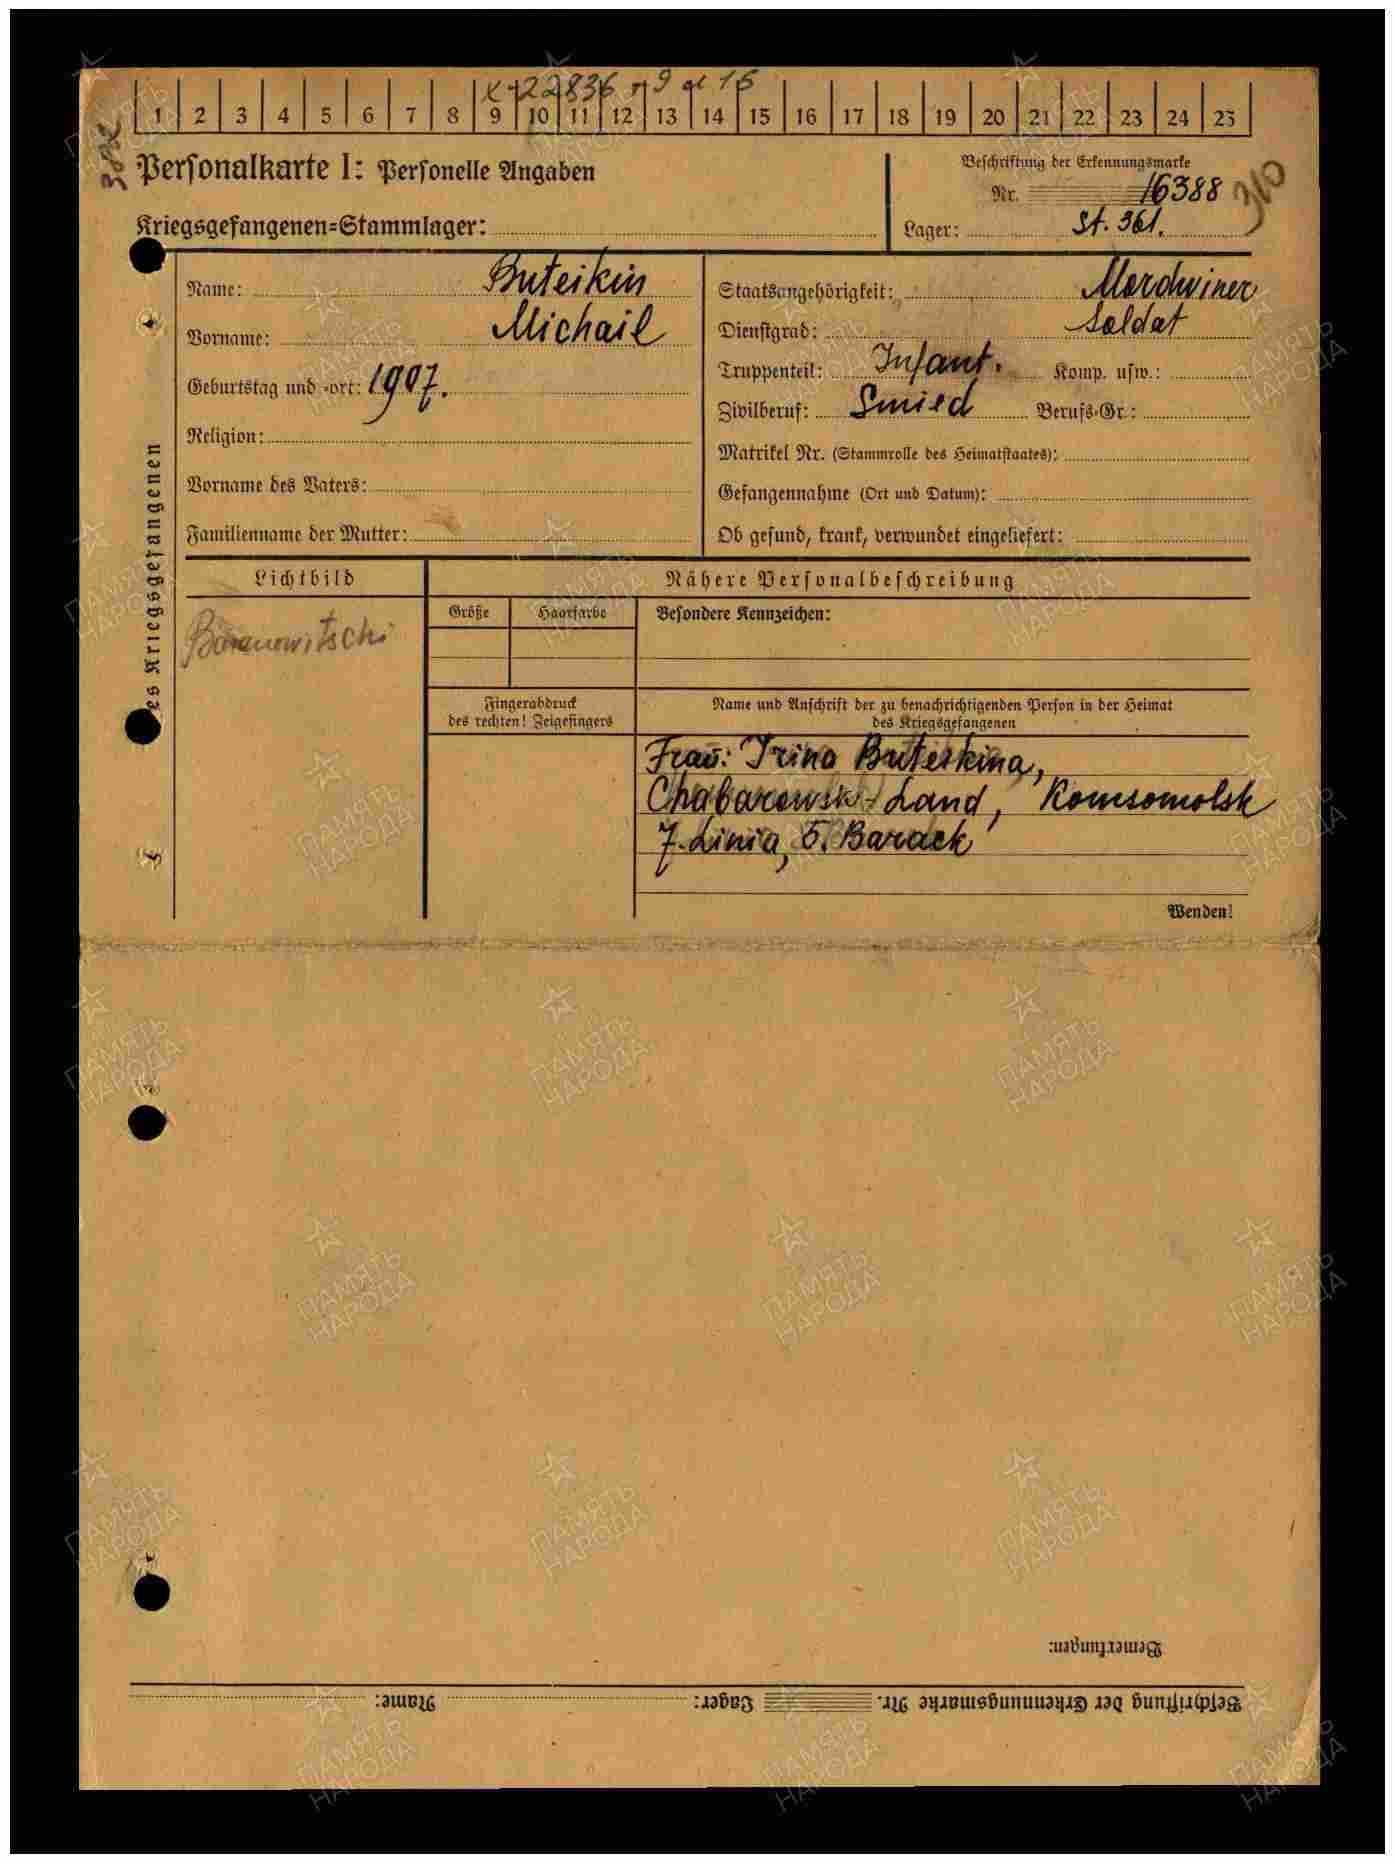 X-22836 r 9 d 15
1 2 3 4 5 6 7 8 9 10 11 12 13 14 15 16 17 18 19 20 21 22 23 24 25
Personalkarte I: Personelle Angaben
Kriegsgefangenen=Stammlager:
Beschriftung der Erkennungsmarke
Nr. 16388
310
Lager: St. 361.
es Kriegsgefangenen
Name: Buteikin
Vorname: Michail
Geburtstag und -ort: 1907.
Religion:
Vorname des Vaters:
Familienname der Mutter:
Staatsangehörigkeit: Mordwiner
Dienstgrad: Soldat
Truppenteil: Infant. Komp. usw.:
Zivilberuf: Smied Berufs-Gr.:
Matrikel Nr. (Stammrolle des Heimatstaates):
Gefangennahme (Ort und Datum):
Ob gesund, krank, verwundet eingeliefert:
Lichtbild
Baranowitschi
Nähere Personalbeschreibung
Größe Haarfarbe Besondere Kennzeichen:
Fingerabdruck
des rechten! Zeigefingers
Name und Anschrift der zu benachrichtigenden Person in der Heimat
des Kriegsgefangenen
Frau: Irina Buteikina,
Chabarowsk-Land, Komsomolsk
7. Linia, 5. Barack
Wenden!
Bemerkungen:
Beschriftung der Erkennungsmarke Nr. Lager: Name:
ПАМЯТЬ
НАРОДА